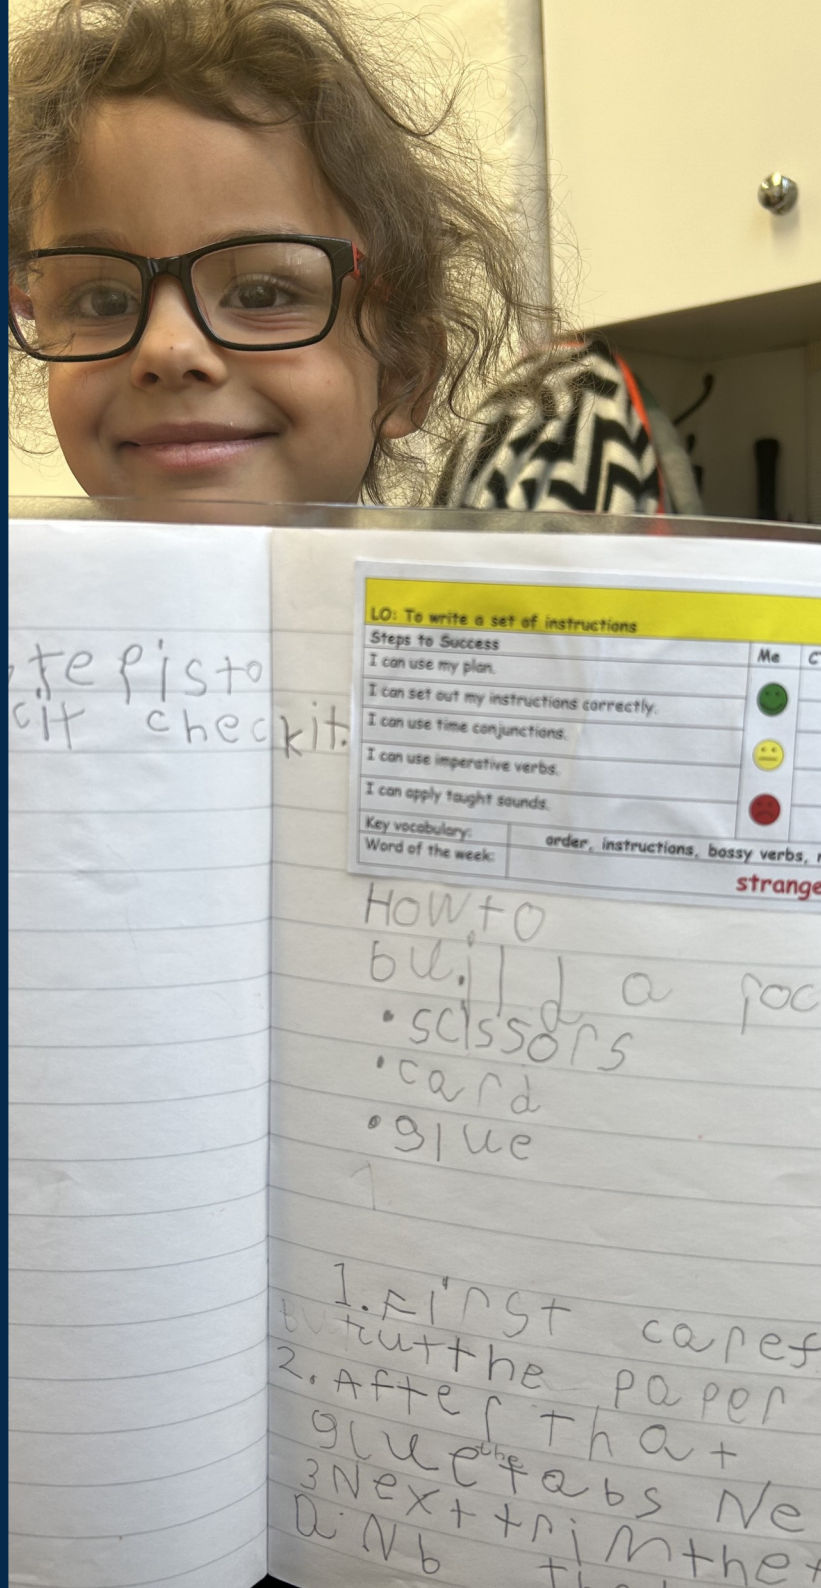 te fisto
cit checkit.
LO: To write a set of instructions
Steps to Success
Me
I can use my plan.
I can set out my instructions correctly.
I can use time conjunctions.
I can use imperative verbs.
I can apply taught sounds.
Key vocabulary:
order, instructions, bossy verbs,
Word of the week:
strange
How to
build a roc
• scissors
• card
• glue
1. First caref
cutthe paper
2. After that
glue the tabs Ne
3 Next trim the t